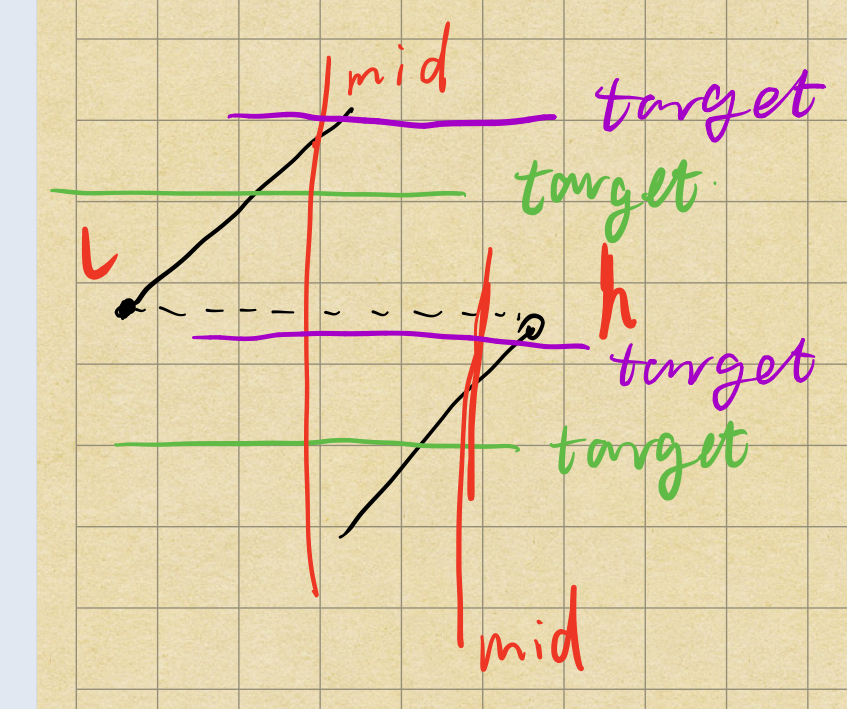 mid
target
target
L
h
target
target
mid